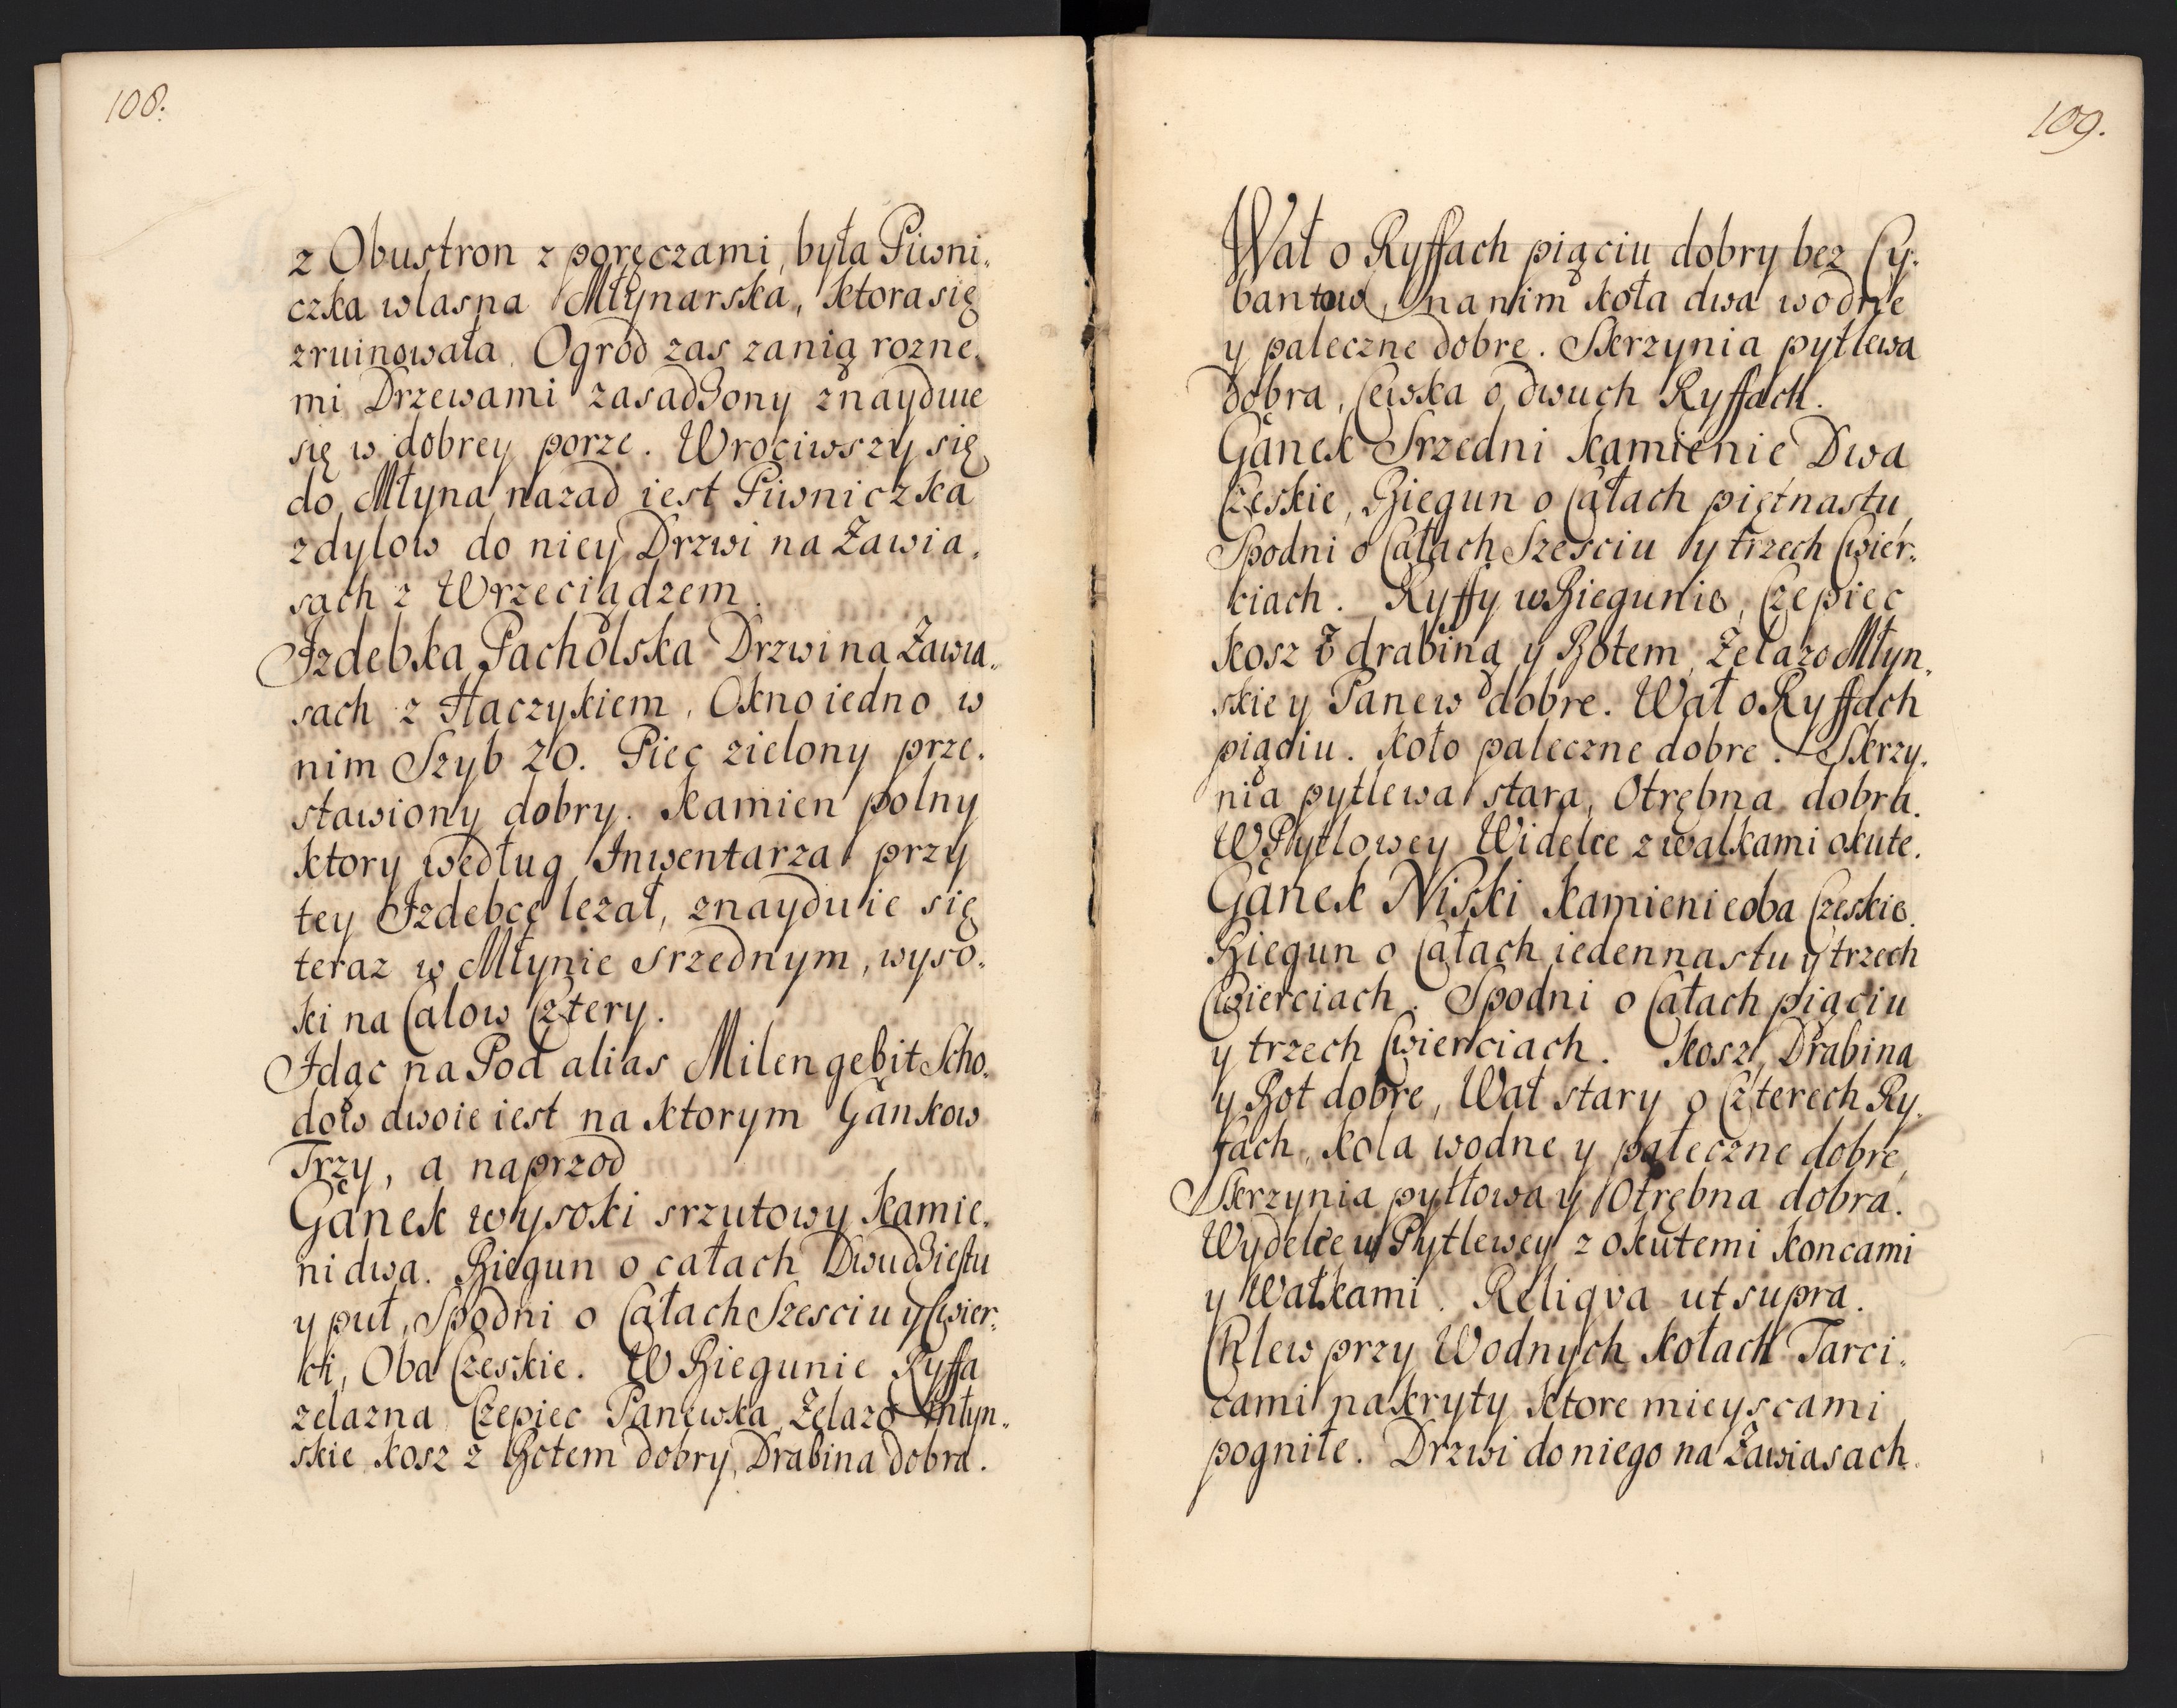 108.
z Obustron z poręczami, była Piwni.
czka wlasna Młynarska, ktora się
zruinowała. Ogrod zas zanią rozne.
mi Drzewami zasadzony znayduie
się w dobrey porze. Wrociwszy się
do Młyna nazad iest Piwniczka
zdylow do niey Drzwi na Zawia.
sach z Wrzeciądzem.
Izdebka Pacholska Drzwi na Zawia.
sach z Haczykiem, Okno iedno w
nim Szyb 20. Piec zielony prze.
stawiony dobry. Kamien polny
ktory według Inwentarza przy
tey Izdebce lezał, znayduie się
teraz w Młynie srzednym, wyso.
ki na Calow Cztery.
Idąc na Pod alias Milen gebit Scho.
dow dwoie iest na ktorym Gankow
Trzy, a naprzod
Ganek wysoki srzutowy Kamie.
ni dwa. Biegun o całach Dwudziestu
y puł, Spodni o Całach Szesciu y Cwier.
ci, Oba Czeskie. W Biegunie Ryffa
zelazna Czepiec Panewka, Zelazo młyn.
skie kosz z Botem dobry, Drabina dobra.
109.
Wał o Ryffach piąciu dobry bez Cy.
bantow, na nim koła dwa wodne
y paleczne dobre. Skrzynia pytlewa
dobra, Cewka o dwuch Ryffach.
Ganek Srzedni kamienie Dwa
Czeskie, Biegun o Całach piętnastu,
Spodni o Całach Szesciu y trzech Cwier.
ciach. Ryffy w Biegunie, Czepiec
kosz z drabiną y Botem, Zelazo Młyn.
skie y Panew dobre. Wał o Ryffach
piąciu. koło paleczne dobre. Skrzy.
nia pytlewa stara, Otrębna dobra.
W Pytlowey Widelce z wałkami okute.
Ganek Niski kamienie oba Czeskie.
Biegun o Całach iedennastu y trzech
Cwierciach. Spodni o Całach piąciu
y trzech Cwierciach. Kosz, Drabina
y Bot dobre, Wał stary o Czterech Ry.
fach, Kola wodne y pałeczne dobre,
Skrzynia pytłowa y Otrębna dobra.
Wydelce w Pytlewey z okutemi koncami
y Wałkami. Religva ut supra.
Chlew przy Wodnych kołach Tarci.
cami nakryty ktore mieyscami
pogniłe. Drzwi do niego na Zawiasach.